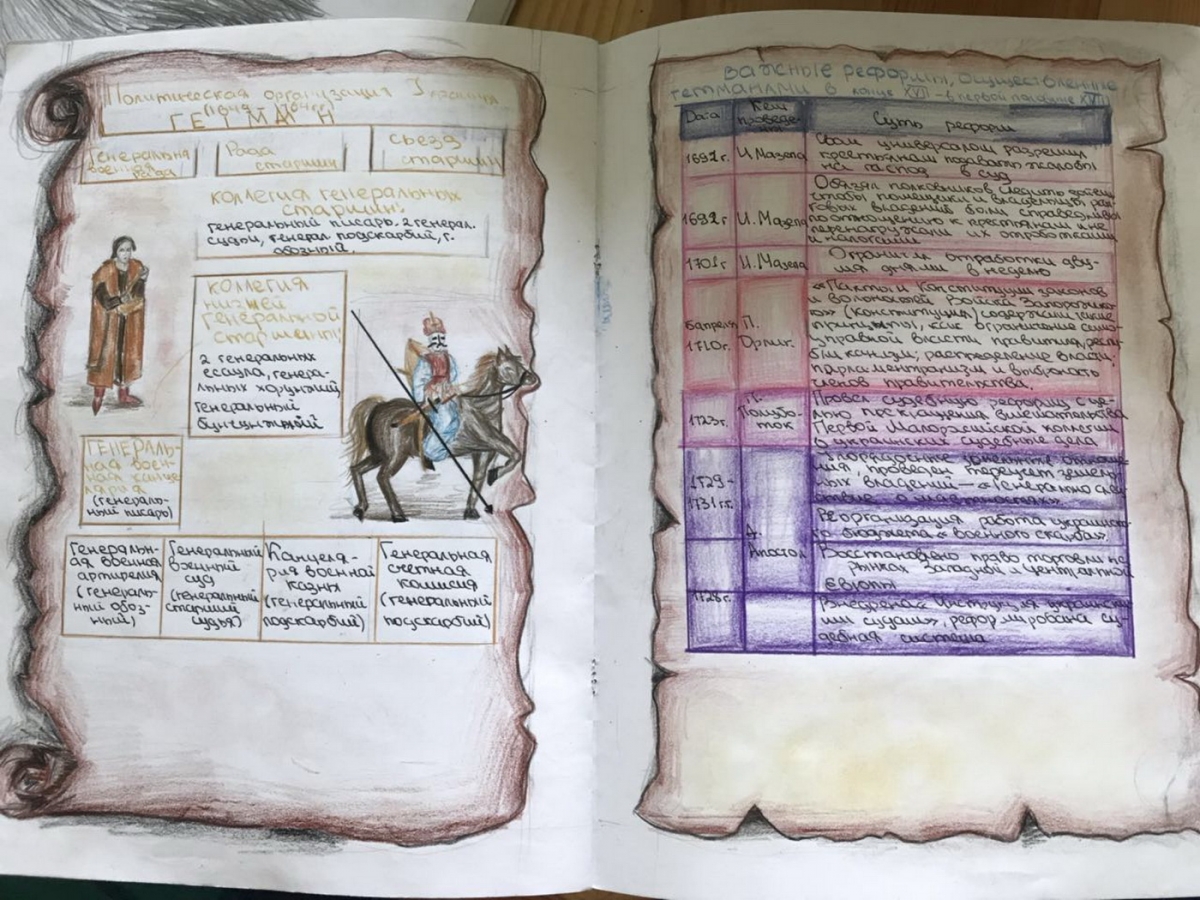 Политическая организация Украины
(1649 – 1764 гг)
ГЕТМАН
Генеральна
военная
рада
Рада
старшин
съезд
старшин
коллегия генеральных
старшин:
генеральный писарь, 2 генерал.
судьи, генерал подскарбий, г.
обозный.
коллегия
низшей
генеральной
старшины:
2 генеральных
есаула, генера-
льных хорунжий,
генеральный
бунчужный
ГЕНЕРАЛЬ-
ная воен-
ная канце-
лярия
(генераль-
ный писарь)
Генеральн-
ая военная
артирелия
(генераль-
ный обоз-
ный)
Генеральный
военный
суд
(генеральный
старший
судья)
Канцеля-
рия военной
казны
(генеральный
подскарбий)
Генеральная
счетная
комисия
(генеральный
подскарбий)
Важные реформы, осуществленные
гетманами в конце XVII – в первой половине XVIII
Дата
Кем
проведе-
ны
Суть реформ
1691 г.
И. Мазепа
Свои универсалом разрешил
крестьянам подавать жалобы
на господ в суд
1692 г.
И. Мазепа
Обязал полковников следить
чтобы помещики и владельцы ран-
говых владений были справедливы
по отношению к крестьянам и не
перенагружали их отработками
и налогами
1701 г.
И. Мазепа
Ограничил отработки дву-
мя днями в неделю
5 апреля
1710 г.
П.
Орлик.
«Пакты и Конституции законов
и вольностей Войска Запорожско-
го» (конституция) содержит такие
принципы, как ограничение само-
управной власти правителя, респу-
бликанизм; распределение власти,
парламентаризм и выборность
членов правительства.
1723г.
П.
Полубо-
ток
Провел судебную реформу с це-
лью прекращения вмешательства
Первой Малороссийской коллегии
в украинских судебные дела
1729 -
1731 гг.
Д.
Апостол
Упорядочены земельные отноше-
ния, проведен переучет земель-
ных владений — «Генерально сле-
дствие о маетностях»
Реорганизация работа украинско-
го бюджета «военного скарба»
Восстановлено право торговли на
рынках Западной и Центральной
Европы
1728г.
Внедрена «Инструкция украински-
ми судам», реформирована су-
дебная система